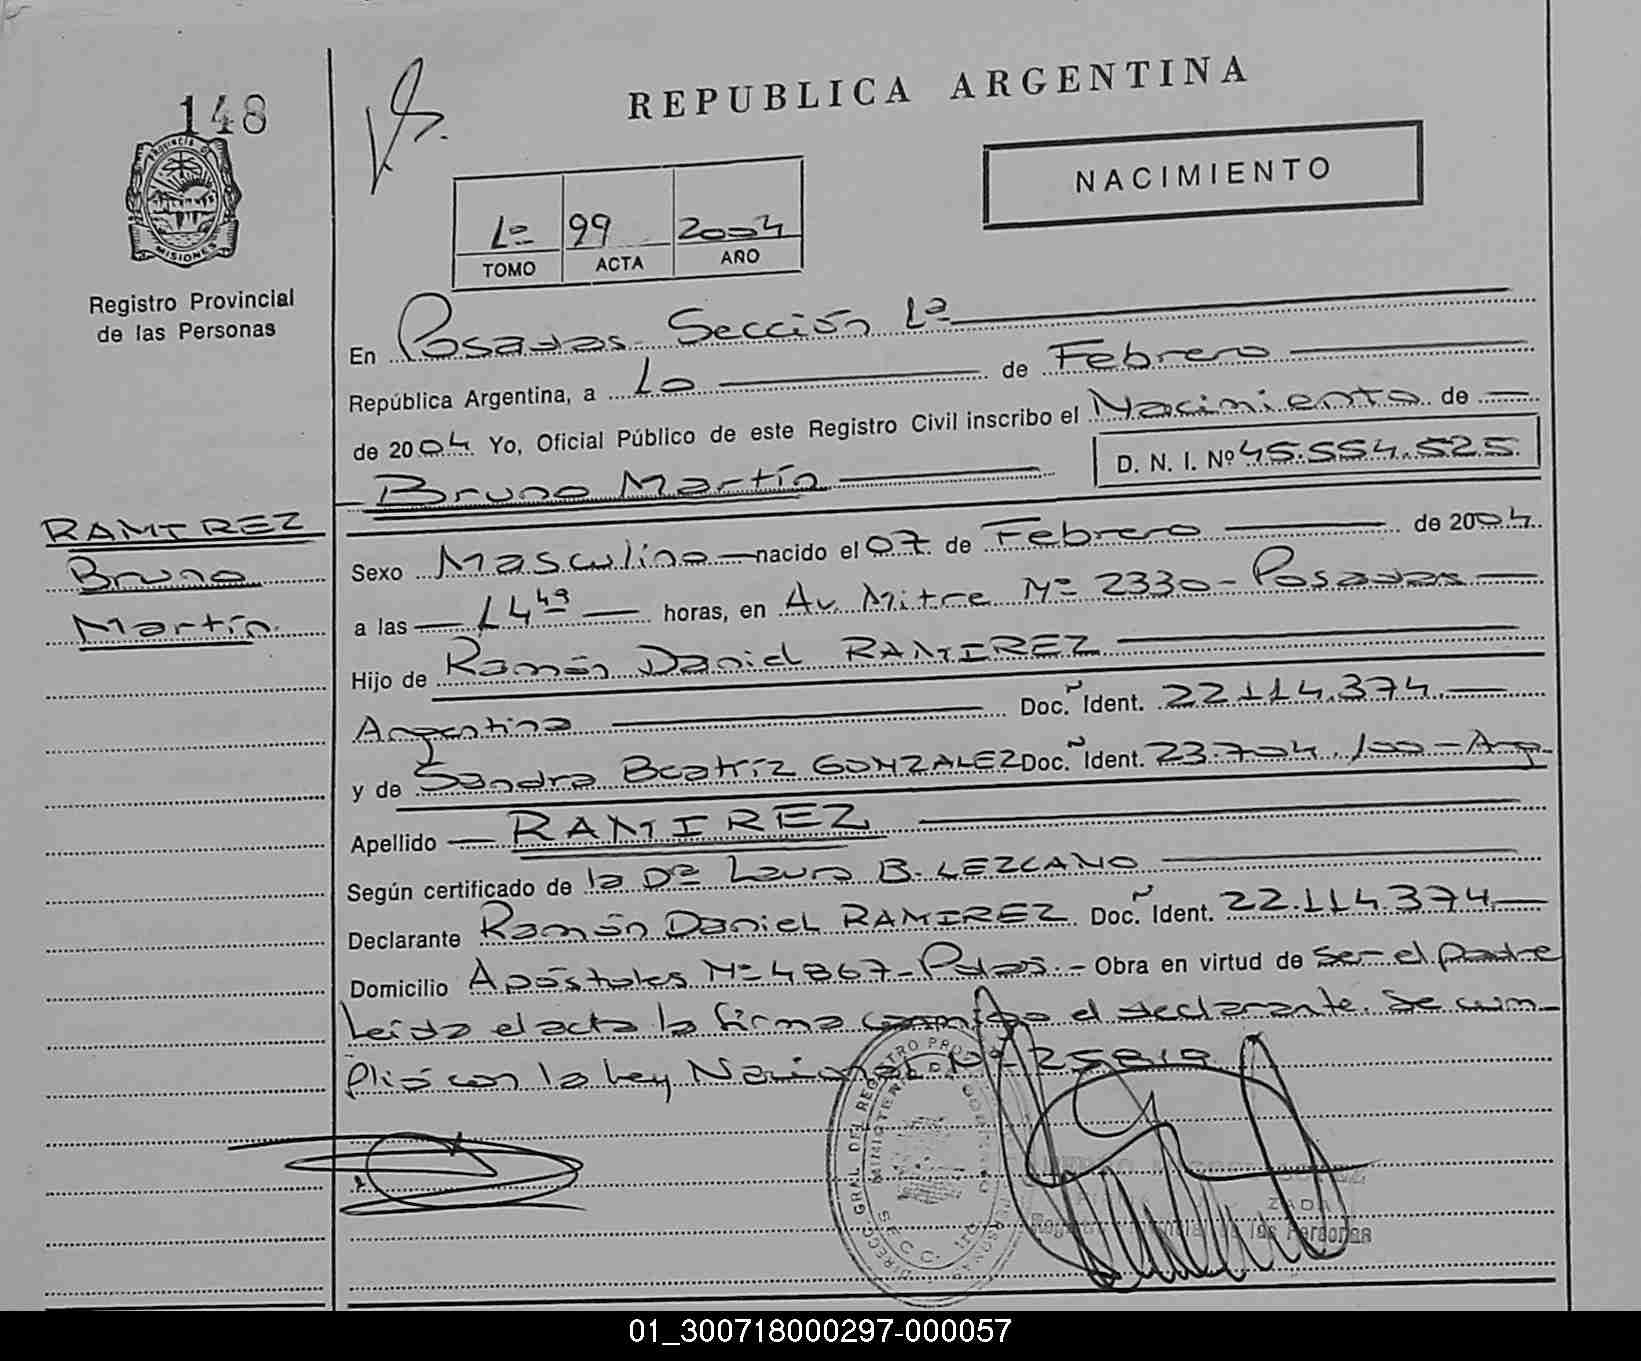 148
REPUBLICA ARGENTINA
NACIMIENTO
PROVINCIA DE
MISIONES
Registro Provincial
de las Personas
1º 99 2004
TOMO ACTA AÑO
En Posadas Sección 1ª
República Argentina, a 10 de Febrero
de 2004 Yo, Oficial Público de este Registro Civil inscribo el Nacimiento de
Bruno Martín D. N. I. Nº 45.554.525
RAMIREZ
Bruno
Martín
Sexo Masculino nacido el 07 de Febrero de 2004
a las 14 49 horas, en Av. Mitre Nº 2330 - Posadas
Hijo de Ramón Daniel RAMIREZ
Argentina Doc. Ident. 22.114.374
y de Sandra Beatríz GONZALEZ Doc. Ident. 23.704.100 - Arg.
Apellido RAMIREZ
Según certificado de la Dª Laura B. LEZCANO
Declarante Ramón Daniel RAMIREZ Doc. Ident. 22.114.374
Domicilio Apóstoles Nº 4867 - Pdas. - Obra en virtud de ser el padre
Leída el acta la firma conmigo el declarante. Se cum-
plió con la Ley Nacional Nº 25819
DIRECC. GRAL. DEL REGISTRO PROV
MINISTERIO DE GOBIERNO
SECC.
Registro Provincial de las Personas
01_300718000297-000057